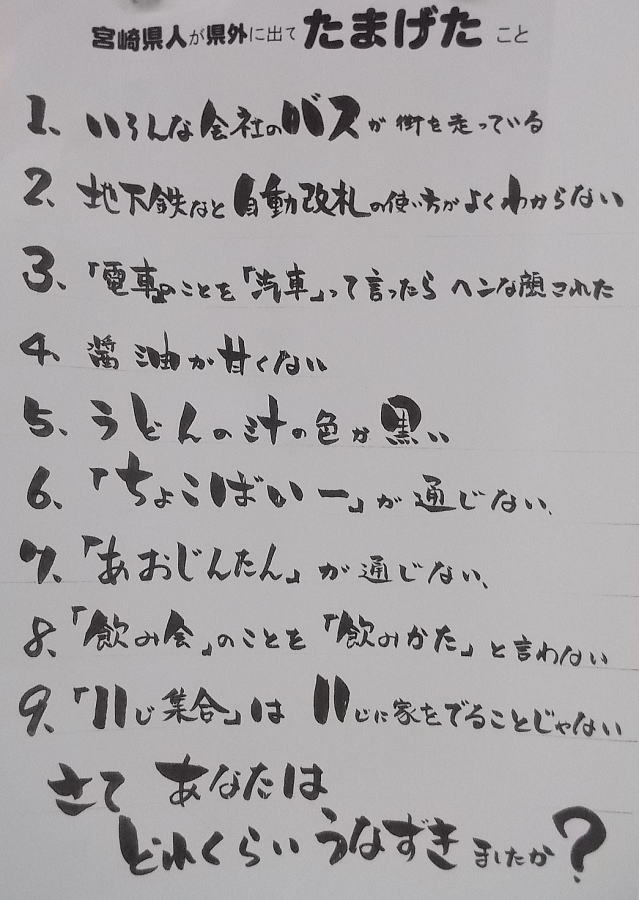 宮崎県人が県外に出てたまげたこと
1、いろんな会社のバスが街を走っている
2、地下鉄など自動改札の使い方がよくわからない
3、「電車」のことを「汽車」って言ったらヘンな顔された
4、醤油が甘くない
5、うどんの汁の色が黒い
6、「ちょこばいー」が通じない、
7、「あおじんたん」が通じない、
8、「飲み会」のことを「飲みかた」と言わない
9、「11じ集合」は11じに家をでることじゃない
さてあなたは
どれくらいうなずきましたか?